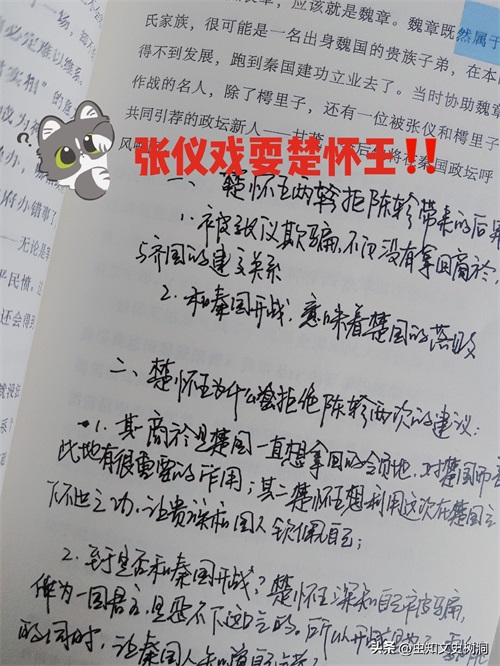 应该就是魏章。魏章既然属于
氏家族，很可能是一名出身魏国的贵族子弟，在本
得不到发展，跑到秦国建功立业去了。当时协助魏章
作战的名人，除了樗里子，还有一位被张仪和樗里子
共同引荐的政坛新人——甘茂
将在秦国政坛呼
风
张仪戏耍楚怀王!!
一、楚怀王两次拒陈轸带来的后果
1. 被张仪欺骗，不仅没有拿回商於，
与齐国的建交关系
2. 和秦国开战，意味着楚国的落败
二、楚怀王为什么会拒绝陈轸两次的建议：
1. 其一商於是楚国一直想拿回的领地，对楚国而言
此地有很重要的作用；其二楚怀王想利用这次在楚国立
下不世之功，让贵族和国人钦佩自己；
2. 至于是否和秦国开战？楚怀王深知自己被骗，
作为一国君主，是忍不下这口气的。所以开战是为了
的同时，让秦国人知道自己
必定难以维系
实相”的
府办错事了
——无论是
平民情，
还会得到
头条@主知文史树洞